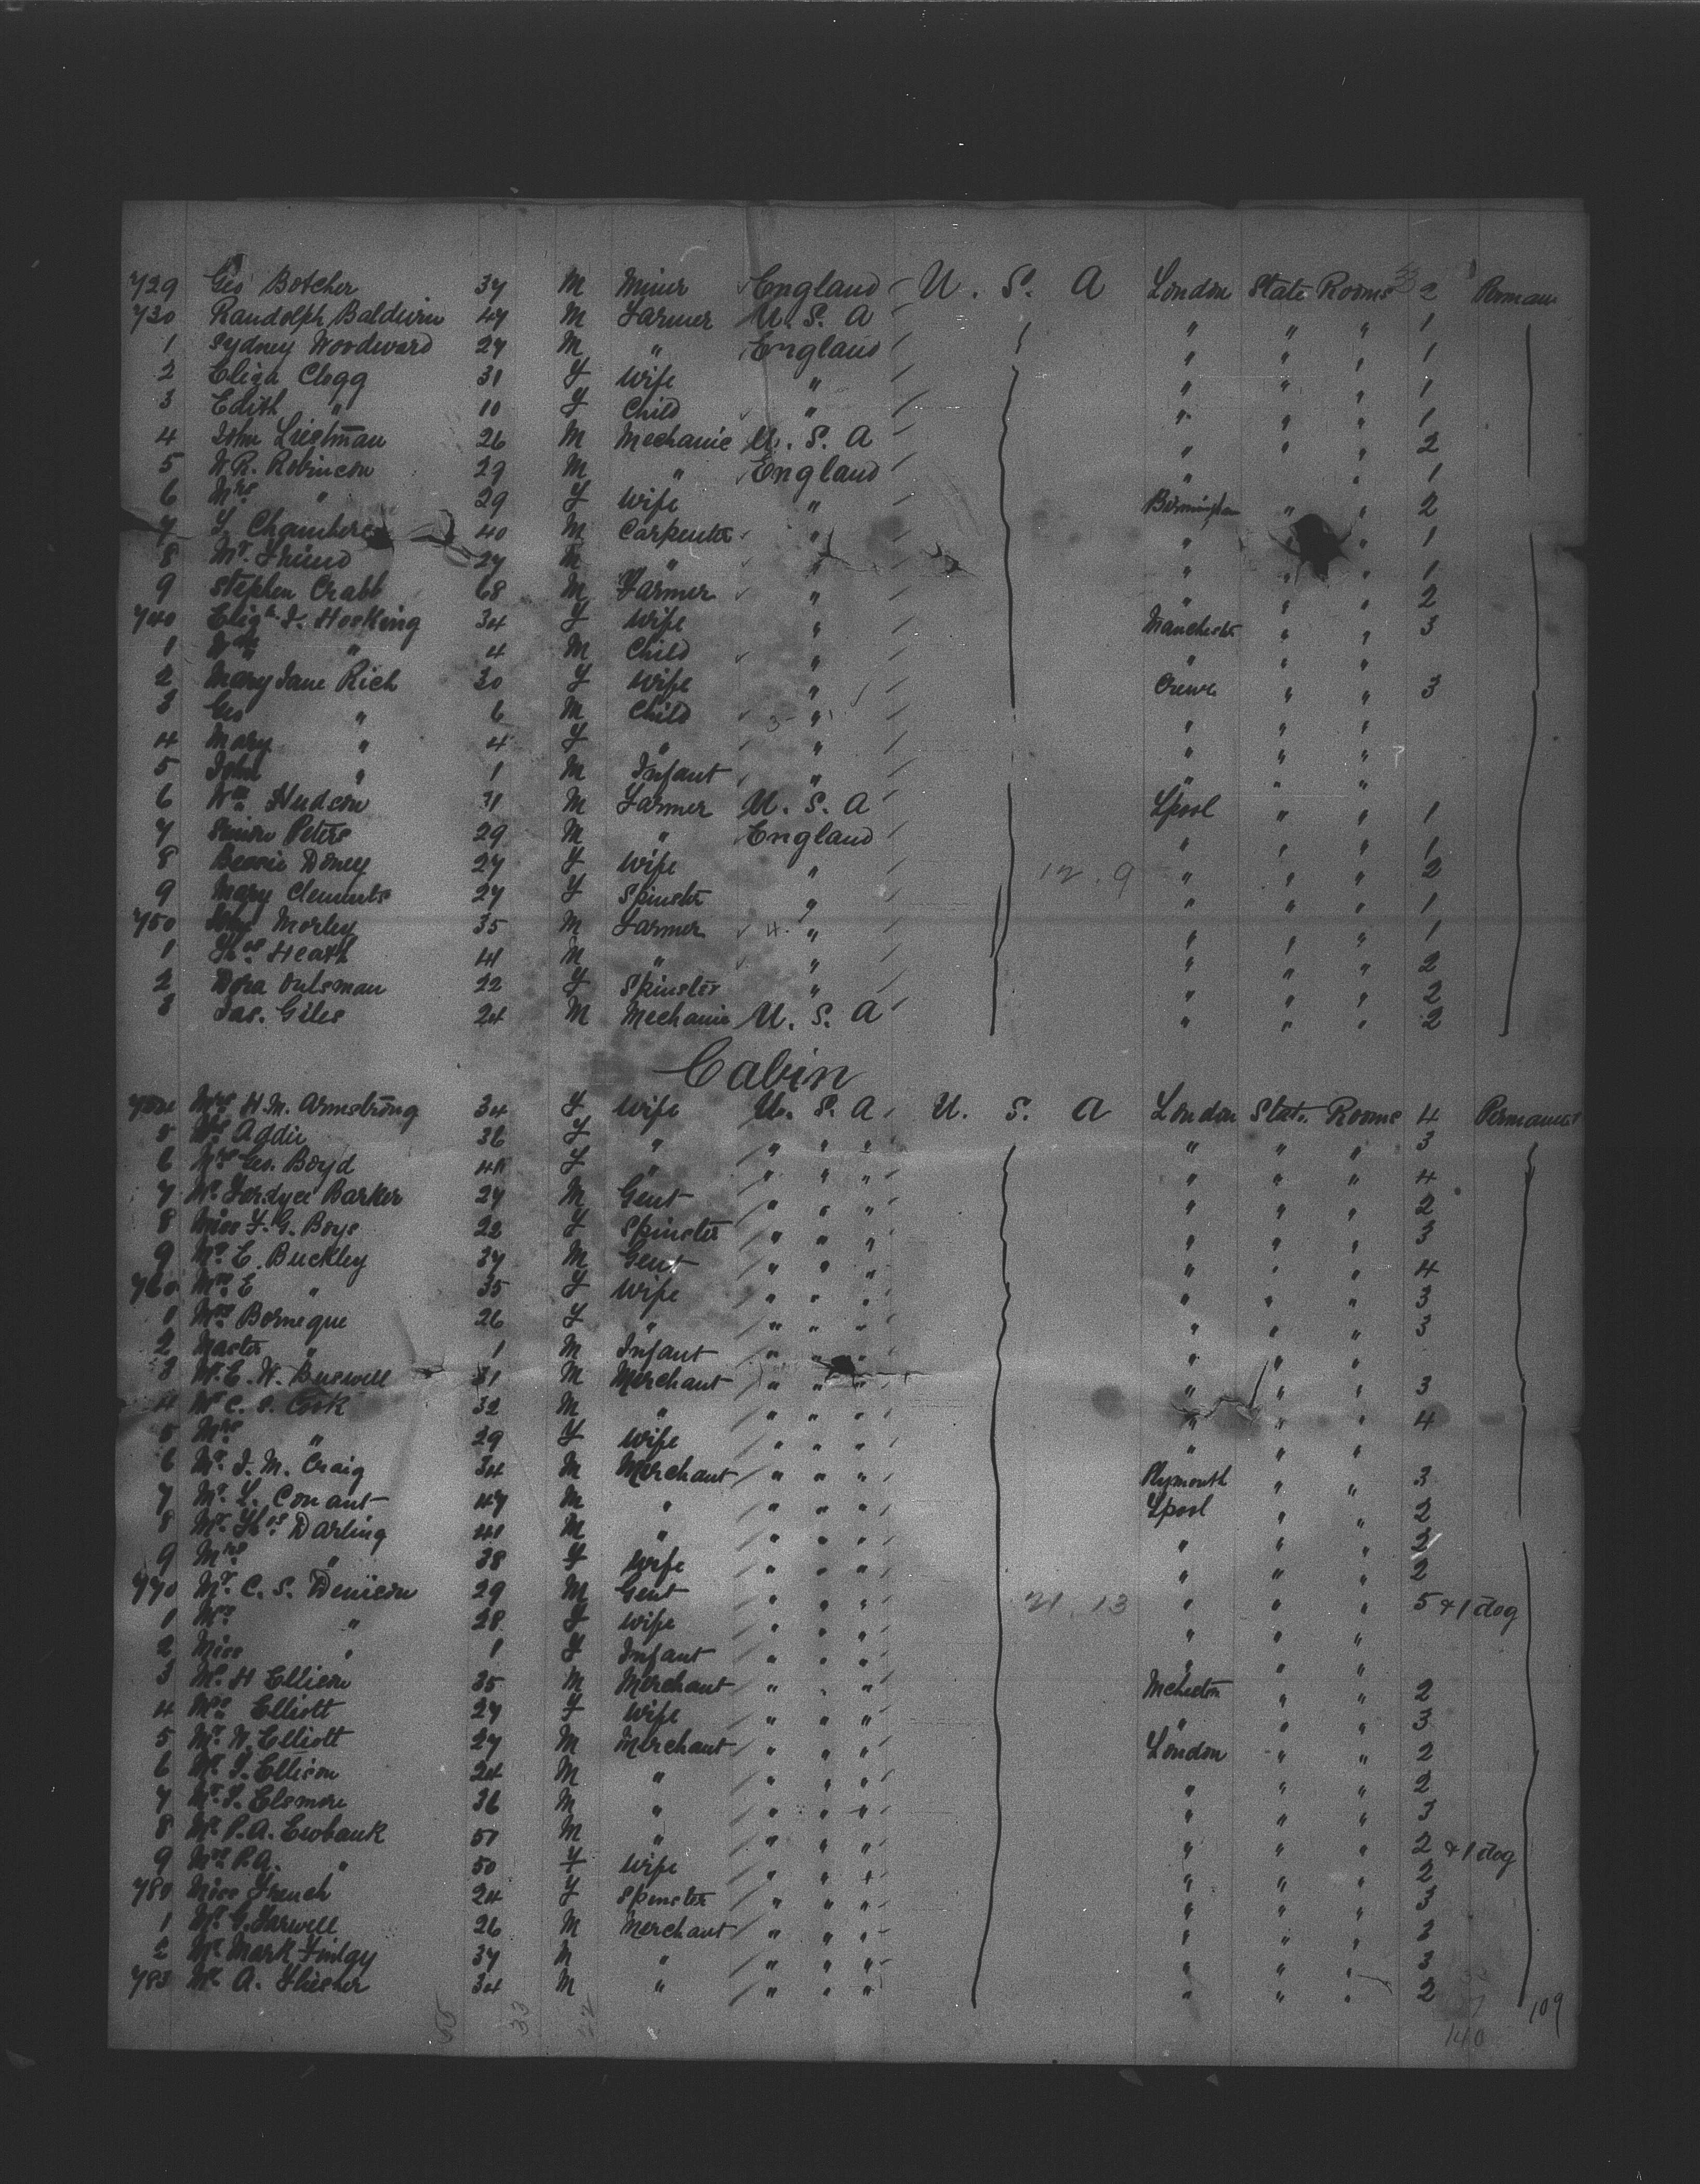 729 Geo Botcher 34 M Miner England U. S. A London State Rooms 2
730 Randolph Baldwin 47 M Farmer U. S. A " " " 1
1 Sydney Woodward 27 M " England " " " 1
2 Eliza Clegg 31 F Wife " " " " 1
3 Edith " 10 F Child " " " " 1
4 John 26 M Mechanic U. S. A " " " 2
5 W. R. Robinson 29 M " England " " 1
6 Mrs " 29 F Wife " Birmingham " " 2
7 Chambers 40 M Carpenter " " " 1
8 Mr. 27 M " " " " " 1
9 Stephen Crabb 68 M Farmer " " " " 2
740 Elizth J. Hosking 34 F Wife " Manchester " " 3
1 Wm " 4 M Child " " " "
2 Mary Jane Rich 30 F Wife " Crewe " " 3
3 Geo " 6 M Child " " " "
4 Mary " 4 F " " " " "
5 John " 1 M Infant " " " "
6 Wm Hudson 31 M Farmer U. S. A Lpool " " 1
7 Peters 29 M " England " " " 1
8 Bessie Doney 27 F Wife " 12. 9 " " " 2
9 Mary Clements 27 F Spinster " " " " 1
750 Morley 35 M Farmer " " " " 1
1 Thos Heath 41 M " " " " " 2
2 Dora Outsman 22 F Spinster " " " " 2
3 Jas. Giles 24 M Mechanic U. S. A " " " 2
Cabin
Mrs H. M. Armstrong 34 F Wife U. S. A U. S. A London State Rooms 4 Permanent
5 Addie 36 F " " " " " " " 3
6 Mrs Geo. Boyd 41 F " " " " " " " 4
7 Mr Fordyce Barker 27 M Gent " " " " " " 2
8 Miss F. G. Boys 22 F Spinster " " " " " " 3
9 Mr E. Buckley 37 M Gent " " " " " " 4
760 Mrs E " 35 F Wife " " " " " " 3
1 Mrs Borneque 26 F " " " " " " " 3
2 Master " 1 M Infant " " " " " "
3 Mr E. W. Buswell 31 M Merchant " " " " " " 3
4 Mr C. S. Cook 32 M " " " " " " " 4
5 Mrs " 29 F Wife " " " " " "
6 Mr J. M. Craig 34 M Merchant " " " Plymouth " " 3
7 Mr L. Conant 47 M " " " " Lpool " " 2
8 Mr Thos Darling 41 M " " " " " " " 2
9 Mrs " 38 F Wife " " " " " " 2
770 Mr C. S. Denison 29 M Gent " " " 21. 13 " " " 5 & 1 dog
1 Mrs " 28 F Wife " " " " " "
2 Miss " 1 F Infant " " " " " "
3 Mr H Ellison 35 M Merchant " " " " " 2
4 Mrs Elliott 27 F Wife " " " " " " 3
5 Mr W. Elliott 27 M Merchant " " " London " " 2
6 Mr Ellison 24 M " " " " " " " 2
7 Mr Elsmore 36 M " " " " " " " 3
8 Mr P. A. Ewbank 51 M " " " " " " " 2 & 1 dog
9 Mrs P. A. " 50 F Wife " " " " " " 2
780 Miss French 24 F Spinster " " " " " " 3
1 Mr G. Farwell 26 M Merchant " " " " " " 3
2 Mr Mark Finlay 37 M " " " " " " " 3
783 Mr A. 34 M " " " " " " " 2
33 140 109